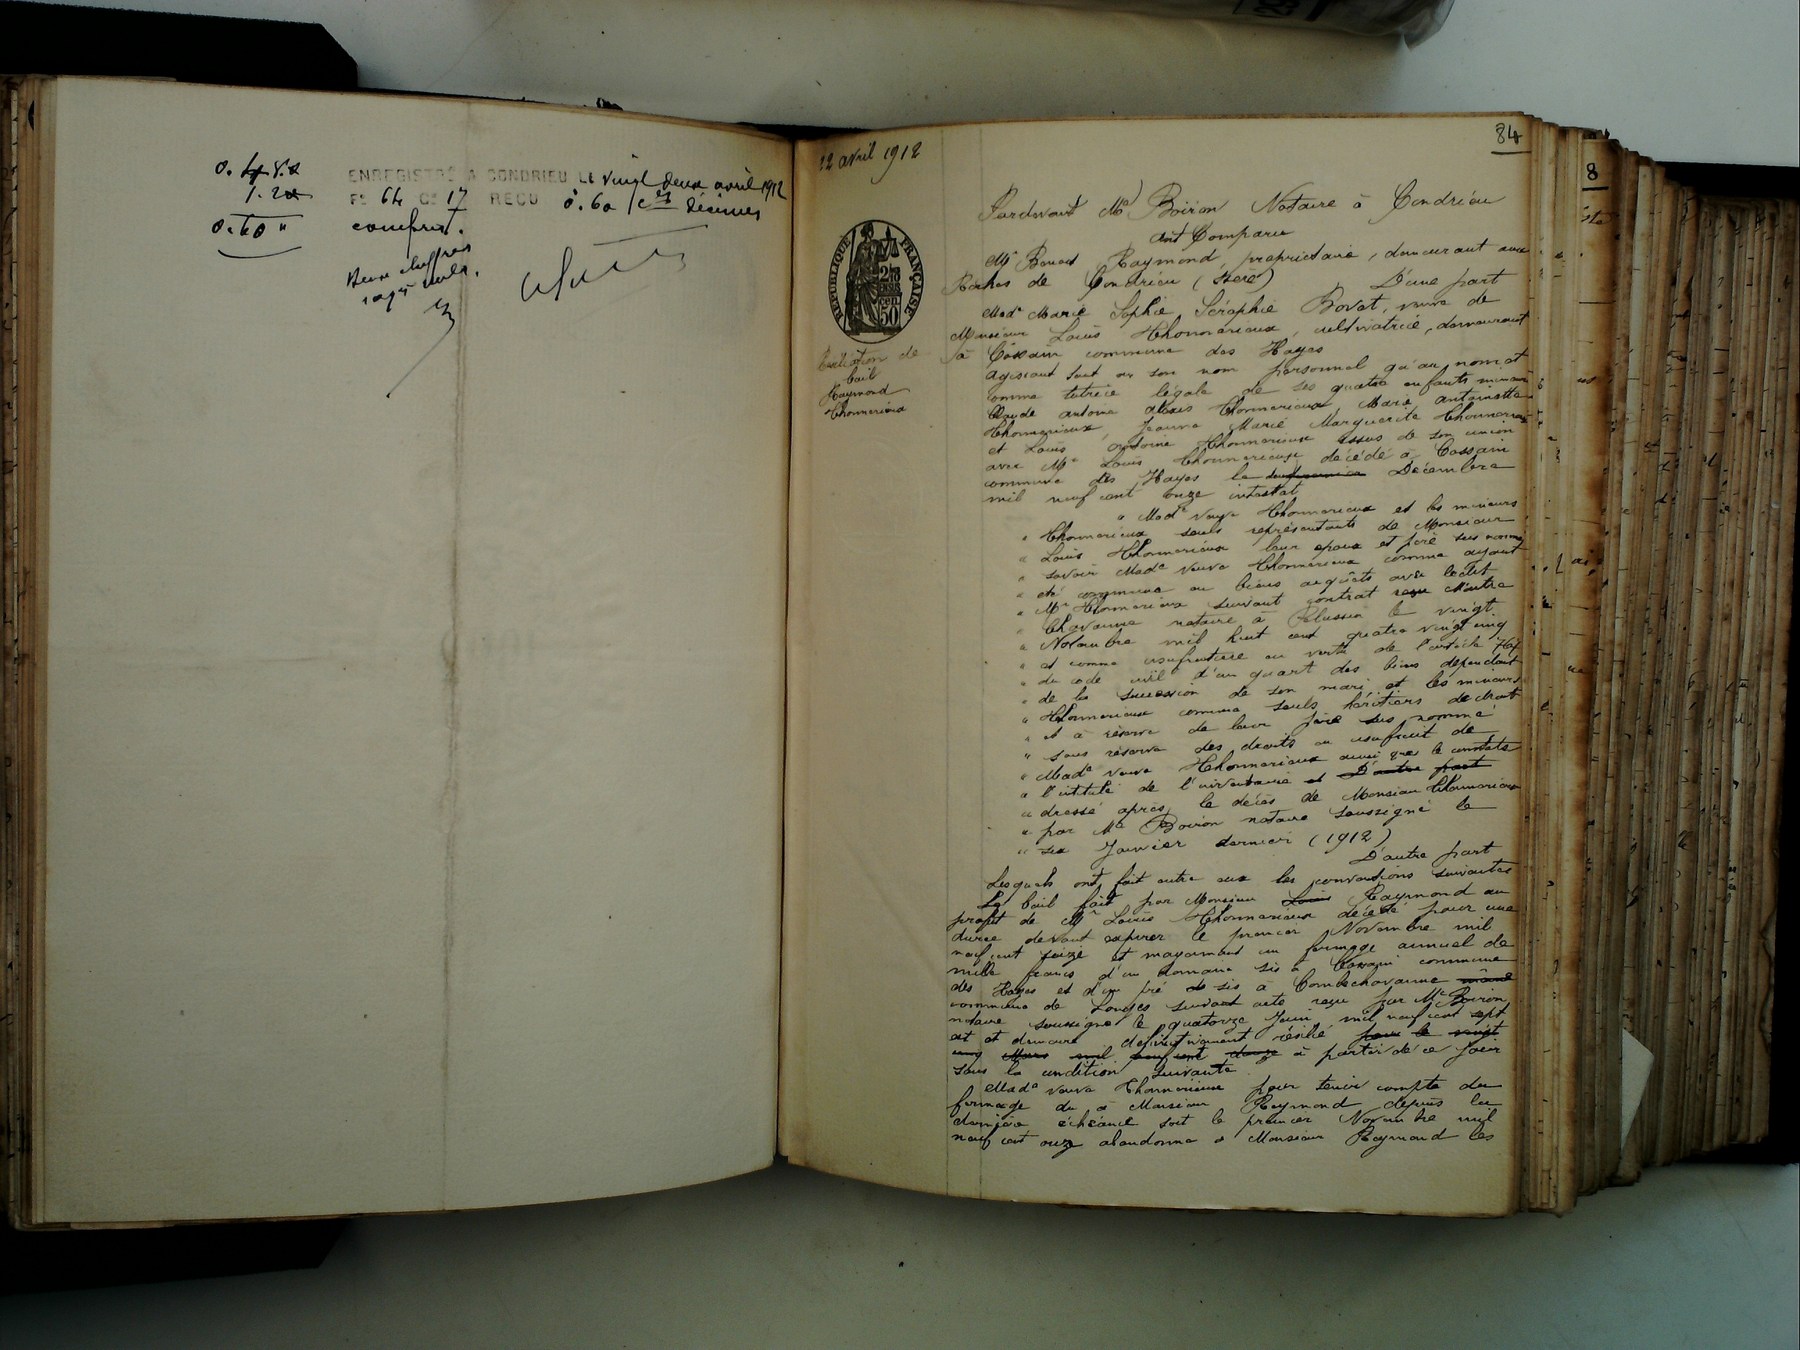 ENREGISTRÉ A CONDRIEU LE vingt deux avril 1912
F° 64 C° 17 REÇU 0.60 décimes
compris.
Deux chiffres
rayés nuls.
22 avril 1912
84
8
RÉPUBLIQUE FRANÇAISE
50
Résiliation de
bail
Raymond
Thommerieux
Pardevant Me Boiron Notaire à Condrieu
ont Comparu
Mr Raymond, propriétaire, demeurant aux
Roches de Condrieu (Isère) D'une part
Made Marie Sophie Séraphie Bovet, veuve de
Monsieur Louis Thommerieux, cultivatrice, demeurant
à Cossain commune des Hayes
agissant tant en son nom personnel qu'au nom et
comme tutrice légale de ses quatre enfants mineurs
Claude antoine alexis Thommerieux, Marie antoinette
Thommerieux, Jeanne Marie Marguerite Thommerieux
et Louis antoine Thommerieux issus de son union
avec Mr Louis Thommerieux décédé à Cossain
commune des Hayes le Décembre
mil neuf cent onze intestat
" Made veuve Thommerieux et les mineurs
" Thommerieux seuls représentants de Monsieur
" Louis Thommerieux leur époux et père sus nommé
" savoir Made veuve Thommerieux comme ayant
" été commune en biens acquêts avec ledit
" Mr Thommerieux suivant contrat reçu Maître
" Chavanne notaire à Pelussin le vingt
" Novembre mil huit cent quatre vingt cinq
" et comme usufruitière en vertu de l'article 767
" du code civil d'un quart des biens dépendant
" de la succession de son mari et les mineurs
" Thommerieux comme seuls héritiers de droit
" et à réserve de leur père sus nommé
" sous réserve des droits en usufruit de
" Made veuve Thommerieux ainsi que le constate
" l'intitulé de l'inventaire et D'autre part
" dressé après le décès de Monsieur Thommerieux
" par Me Boiron notaire soussigné le
" six Janvier dernier (1912)
D'autre part
Lesquels ont fait entre eux les conventions suivantes
Le bail fait par Monsieur Louis Raymond au
profit de Mr Louis Thommerieux décédé pour une
durée devant expirer le premier Novembre mil
neuf cent seize et moyennant un fermage annuel de
mille francs d'un domaine sis à Cossain commune
des Hayes et d'un pré sis à Combechavanne même
commune de Longes suivant acte reçu par Me Boiron
notaire soussigné le quatorze Juin mil neuf cent sept
est et demeure définitivement résilié pour le vingt
cinq Mars mil neuf cent douze à partir de ce jour
sous la condition suivante.
Made veuve Thommerieux pour tenir compte du
fermage du à Monsieur Raymond depuis la
dernière échéance soit le premier Novembre mil
neuf cent onze abandonne à Monsieur Raymond les